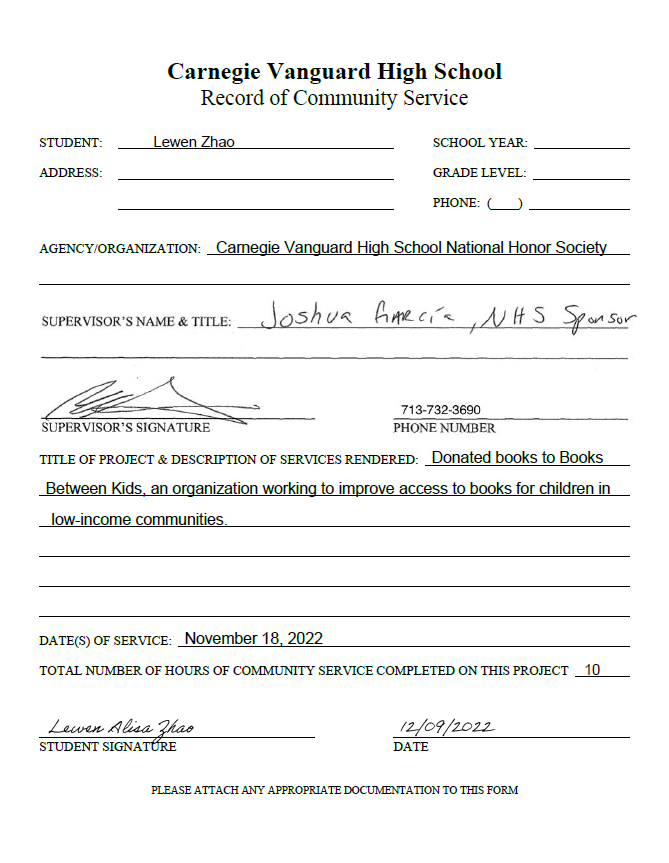 Carnegie Vanguard High School
Record of Community Service
STUDENT: Lewen Zhao SCHOOL YEAR:
ADDRESS: GRADE LEVEL:
PHONE: ( )
AGENCY/ORGANIZATION: Carnegie Vanguard High School National Honor Society
SUPERVISOR'S NAME & TITLE: Joshua Garcia, NHS Sponsor
713-732-3690
SUPERVISOR'S SIGNATURE PHONE NUMBER
TITLE OF PROJECT & DESCRIPTION OF SERVICES RENDERED: Donated books to Books
Between Kids, an organization working to improve access to books for children in
low-income communities.
DATE(S) OF SERVICE: November 18, 2022
TOTAL NUMBER OF HOURS OF COMMUNITY SERVICE COMPLETED ON THIS PROJECT 10
Lewen Alisa Zhao 12/09/2022
STUDENT SIGNATURE DATE
PLEASE ATTACH ANY APPROPRIATE DOCUMENTATION TO THIS FORM